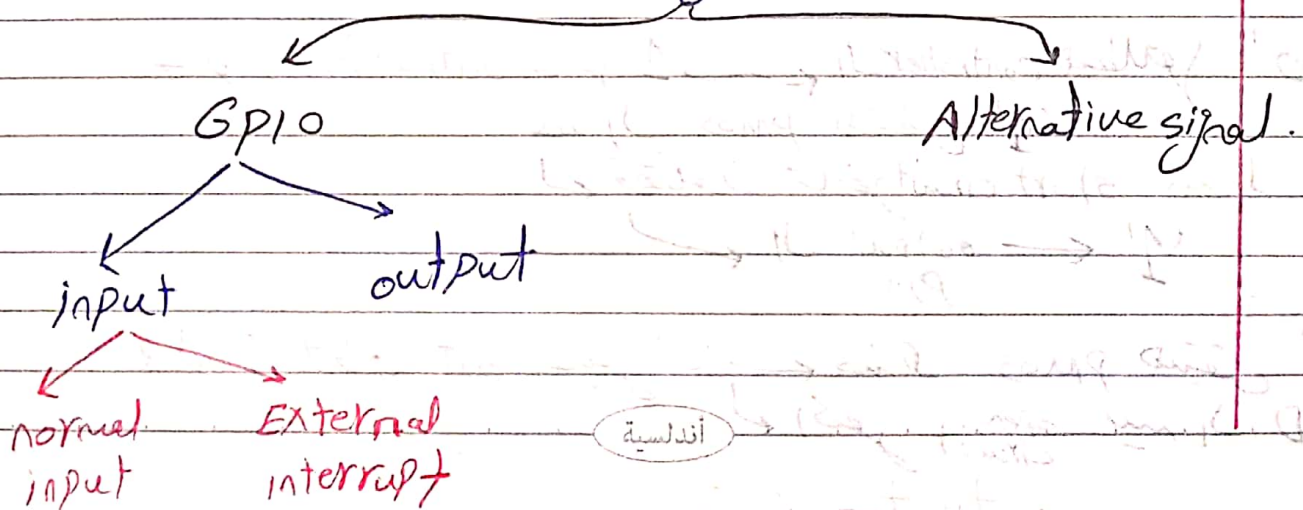 GPIO
Alternative signal.
input
output
normal
input
External
interrupt
أندلسية